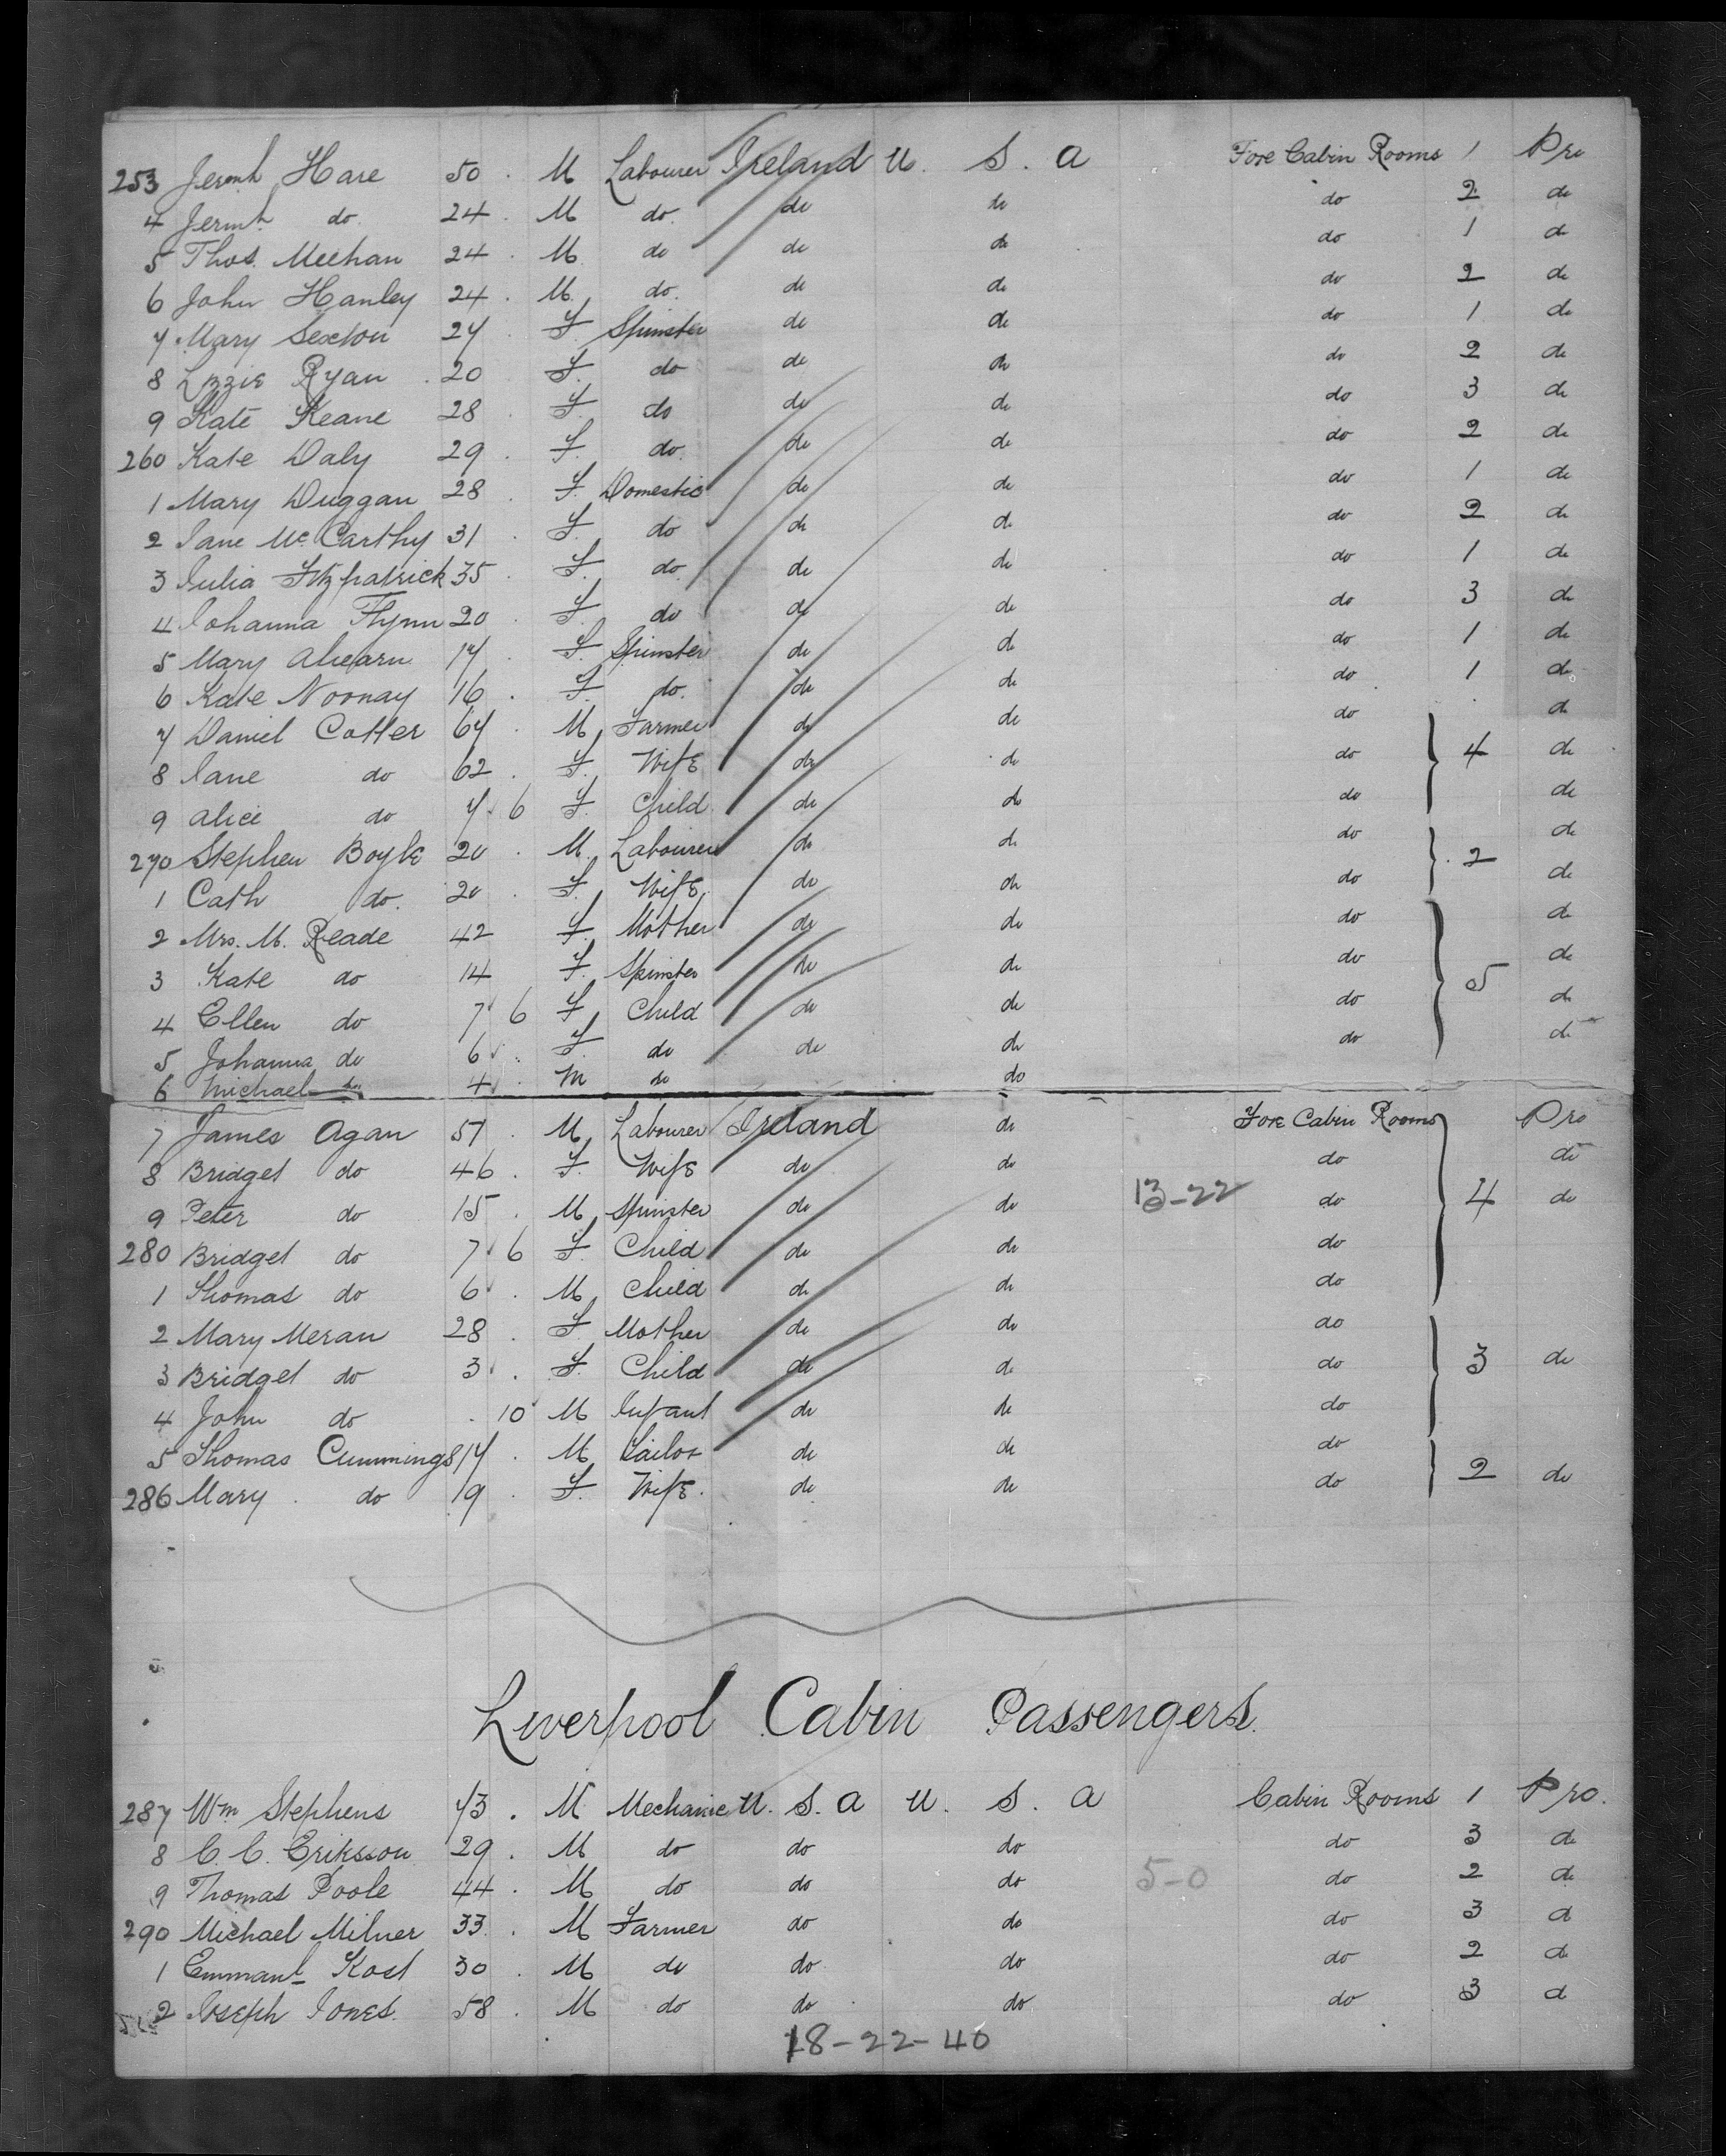 253 Jeremh Hare 50 . M Labourer Ireland U. S. A Fore Cabin Rooms 1 Pro
4 Jermh do 24 . M do. do do do 2 do
5 Thos. Meehan 24 . M do do do do 1 do
6 John Hanley 24 . M. do. do do do 2 do
7 Mary Sexton 27 . F. Spinster do do do 1 do
8 Lizzie Ryan 20 F. do do do do 2 do
9 Kate Keane 28 . F. do do do do 3 do
260 Kate Daly 29 . F. do. do do do 2 do
1 Mary Duggan 28 . F. Domestic do do do 1 do
2 Jane McCarthy 31 . F. do do do do 2 do
3 Julia Fitzpatrick 35 . F. do do do do 1 do
4 Johanna Flynn 20 . F. do do do do 3 do
5 Mary Ahearn 17 . F. Spinster do do do 1 do
6 Kate Noonay 16 . F. do. do do do 1 do
7 Daniel Cotter 67 . M Farmer do do do do
8 Jane do 62 . F. Wife do do do 4 do
9 Alice do 7 6 F. Child do do do do
270 Stephen Boyle 20 . M. Labourer do do do do
1 Cath do. 20 . F. Wife do do do 2 do
2 Mrs. M. Reade 42 F. Mother do do do do
3 Kate do 14 F. Spinster do do do do
4 Ellen do 7 6 F. Child do do do 5 do
5 Johanna do 6 . F. do do do do do
6 Michael do 4 . M do do
7 James Agan 57 . M Labourer Ireland do Fore Cabin Rooms Pro
8 Bridget do 46 . F. Wife do do do do
9 Peter do 15 . M Spinster do do 13-22 do 4 do
280 Bridget do 7 6 F. Child do do do
1 Thomas do 6 . M Child do do do
2 Mary Meran 28 . F. Mother do do do
3 Bridget do 3 . F. Child do do do 3 do
4 John do . 10 M Infant do do do
5 Thomas Cummings 17 . M Tailor do do do
286 Mary . do 19 . F. Wife. do do do 2 do
Liverpool Cabin Passengers.
287 Wm Stephens 43 . M Mechanic U. S. A U. S. A Cabin Rooms 1 Pro.
8 C. C. Eriksson 29 . M do do do do 3 do
9 Thomas Poole 44 . M do do do 5-0 do 2 do
290 Michael Milner 33 . M Farmer do do do 3 do
1 Emmanl Kost 30 . M do do do do 2 do
2 Joseph Jones. 58 . M do do do do 3 do
18-22-40